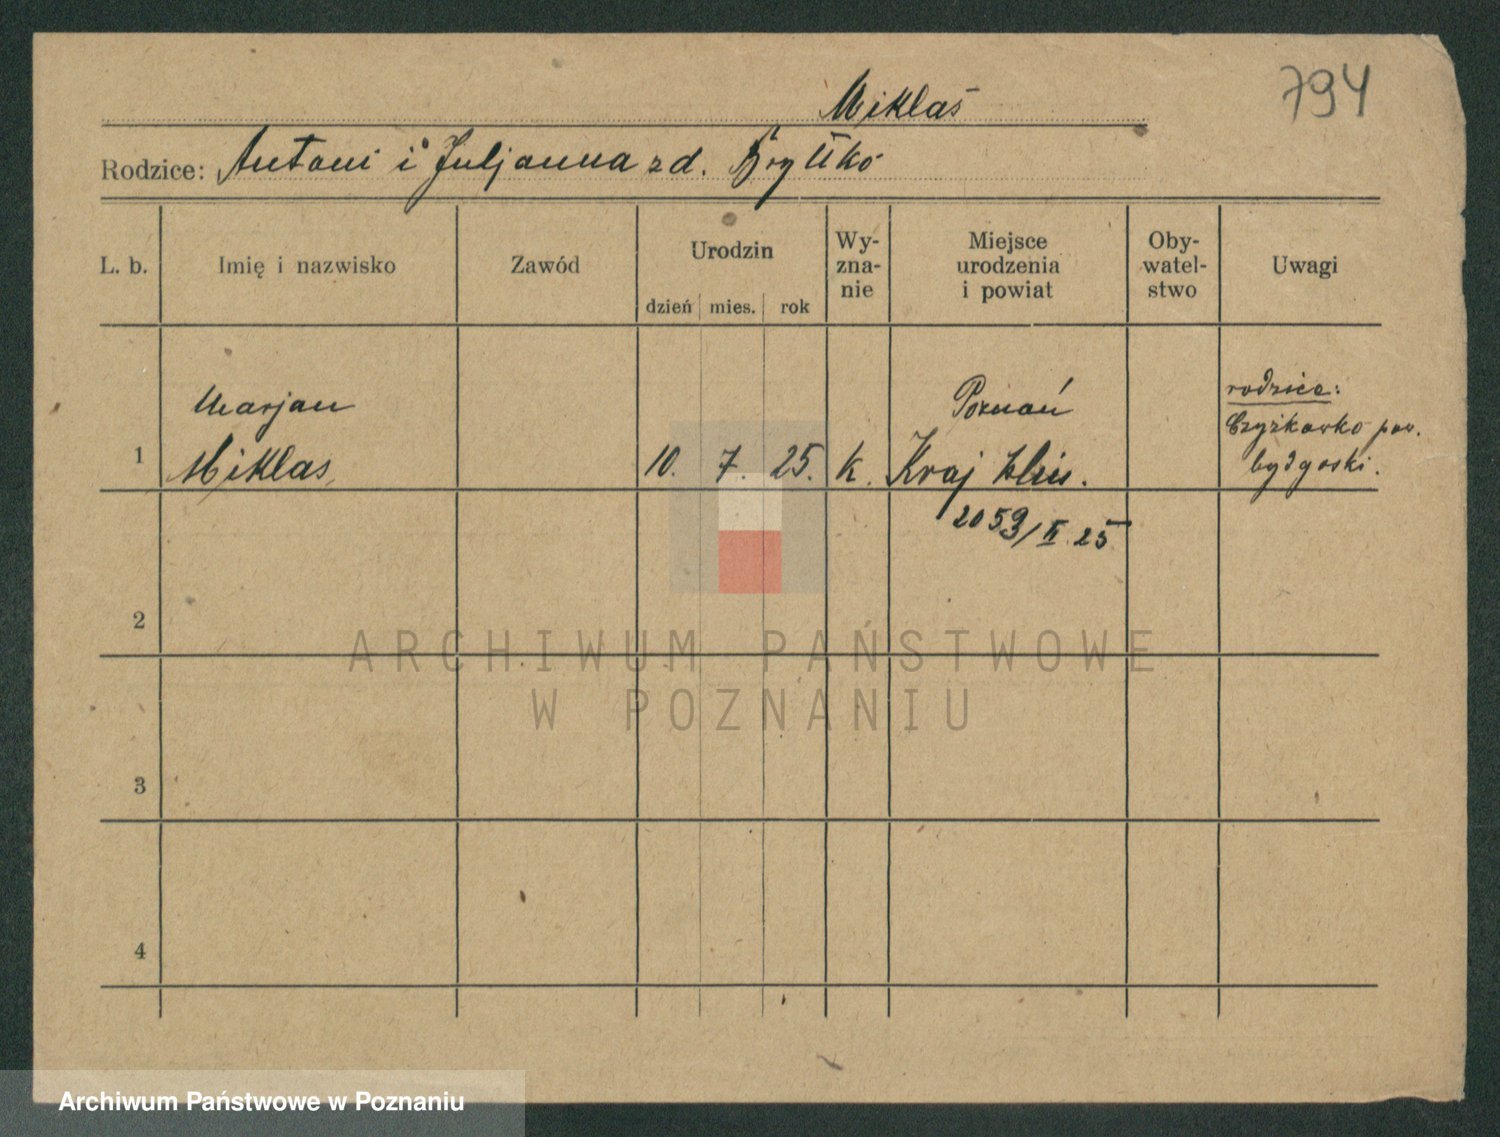 794
Miklaś
Rodzice: Antoni i Juljanna zd.
L. b. Imię i nazwisko Zawód Urodzin Wy-zna-nie Miejsce urodzenia i powiat Oby-watel-stwo Uwagi
dzień mies. rok
Marjan Poznań rodzice:
1 Miklas 10. 7. 25. k. Kraj Czyżkówko pow. bydgoski.
2059/II 25
2
ARCHIWUM PAŃSTWOWE
W POZNANIU
3
4
Archiwum Państwowe w Poznaniu